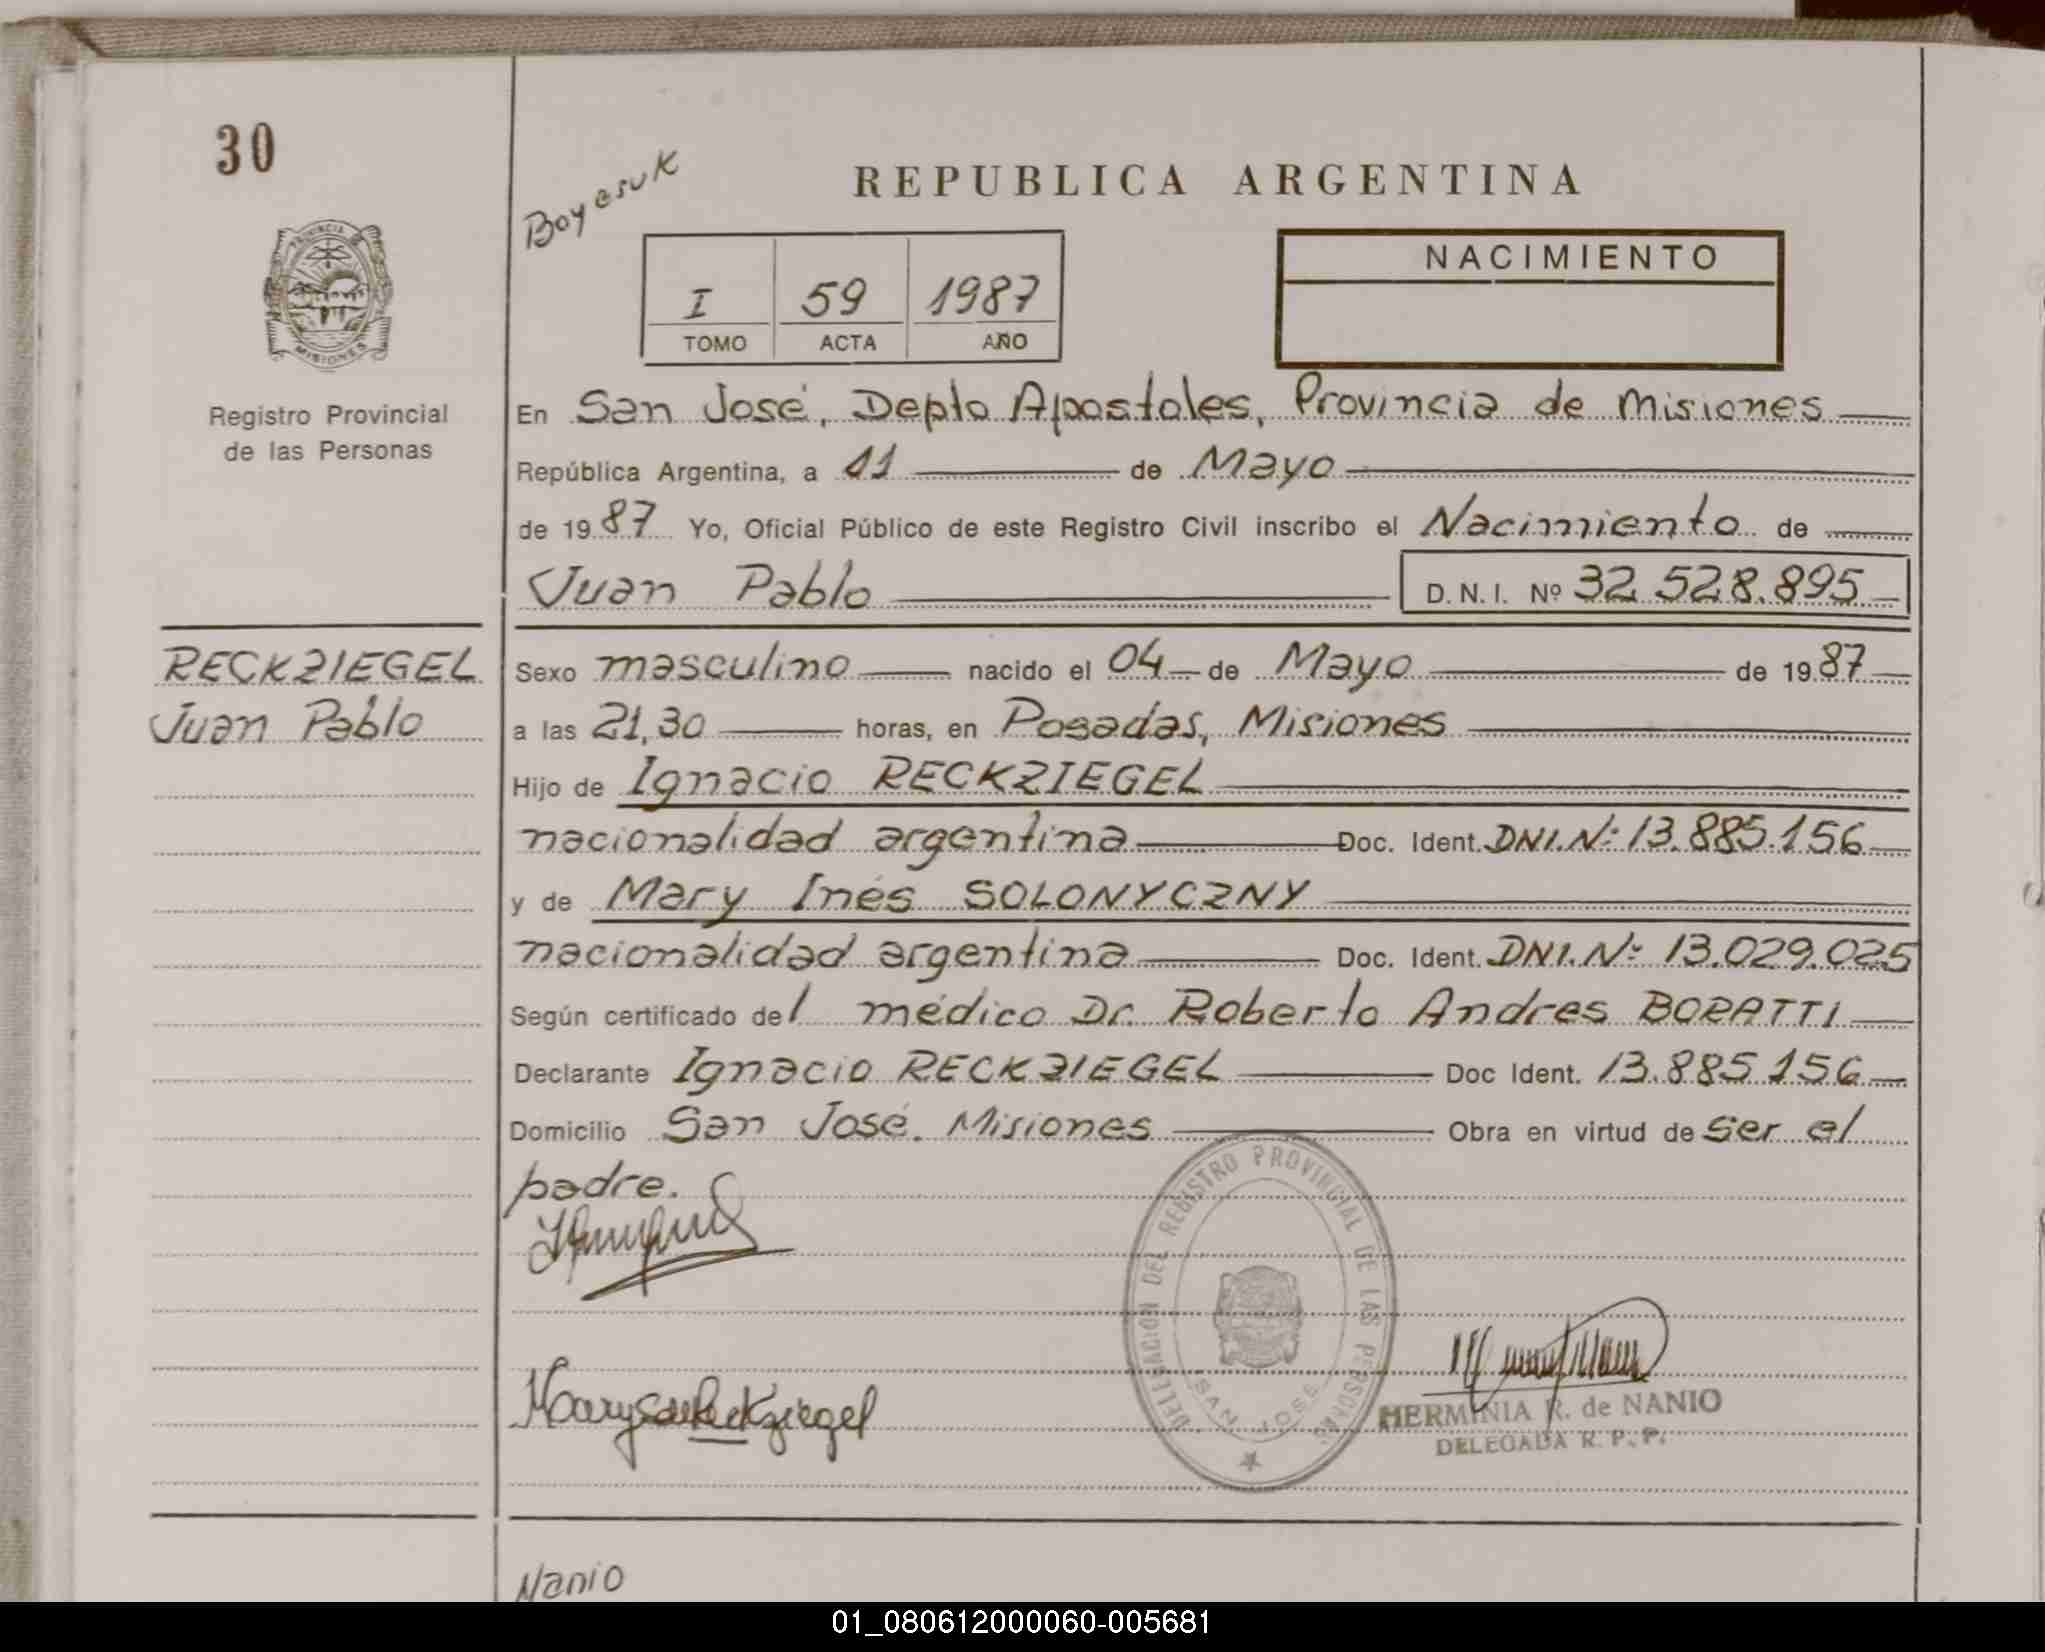 30
Boyesuk
REPUBLICA ARGENTINA
PROVINCIA DE MISIONES
NACIMIENTO
I 59 1987
TOMO ACTA AÑO
Registro Provincial
de las Personas
En San José, Depto Apostoles, Provincia de Misiones
República Argentina, a 11 de Mayo
de 1987 Yo, Oficial Público de este Registro Civil inscribo el Nacimiento de
Juan Pablo D.N.I. Nº 32.528.895
RECKZIEGEL
Juan Pablo
Sexo masculino nacido el 04 de Mayo de 1987
a las 21,30 horas, en Posadas, Misiones
Hijo de Ignacio RECKZIEGEL
nacionalidad argentina Doc. Ident. DNI.Nº 13.885.156
y de Mary Inés SOLONYCZNY
nacionalidad argentina Doc. Ident. DNI.Nº 13.029.025
Según certificado del médico Dr. Roberto Andres BORATTI
Declarante Ignacio RECKZIEGEL Doc Ident. 13.885.156
Domicilio San José. Misiones Obra en virtud de ser el
padre.
DELEGACION DEL REGISTRO PROVINCIAL DE LAS PERSONAS
SAN JOSE
HERMINIA R. de NANIO
DELEGADA R. P. P.
Nanio
01_080612000060-005681